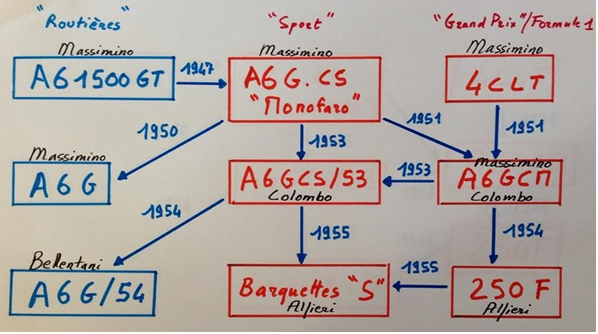 "Routières"
"Sport"
"Grand Prix"/Formule 1
Massimino
A6 1500 GT
1947
Massimino
A6 G.CS
"Monofaro"
Massimino
4CLT
1950
1953
1951
1951
Massimino
A6G
A6GCS/53
Colombo
1953
Massimino
A6GCM
Colombo
1954
1955
1954
Bellentani
A6G/54
Barquettes "S"
Alfieri
1955
250 F
Alfieri